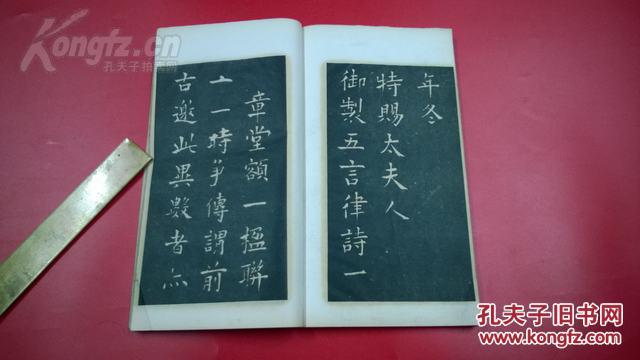 年冬
特賜太夫人
御製五言律詩一
章堂額一楹聯
一時爭傳謂前
古邀此異數者亦
Kongfz.cn
孔夫子拍卖网
孔夫子旧书网
www.kongfz.com